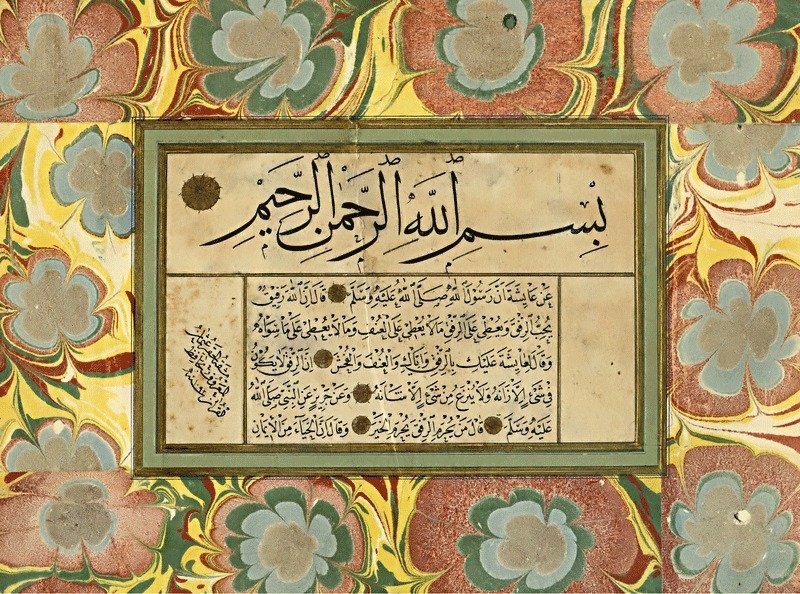 بِسْمِ اللَّهِ الرَّحْمٰنِ الرَّحِيْمِ
عَنْ عَايِشَةَ اَنَّ رَسُوْلَ اللّٰهِ صَلَّى اللّٰهُ عَلَيْهِ وَسَلَّمَ قَالَ اِنَّ اللّٰهَ رَفِيْقٌ
يُحِبُّ الرِّفْقَ وَيُعْطِىْ عَلَى الرِّفْقِ مَالَا يُعْطِىْ عَلَى الْعُنْفِ وَمَالَا يُعْطِىْ عَلٰى مَا سِوَاهُ
وَقَالَ لِعَايِشَةَ عَلَيْكِ بِالرِّفْقِ وَاِيَّاكِ وَالْعُنْفَ وَالْفُحْشَ اِنَّ الرِّفْقَ لَا يَكُوْنُ
فِىْ شَىْءٍ اِلَّا زَانَهُ وَلَا يُنْزَعُ مِنْ شَىْءٍ اِلَّا شَانَهُ وَعَنْ جَرِيْرٍ عَنِ النَّبِىِّ صَلَّى اللّٰهُ
عَلَيْهِ وَسَلَّمَ قَالَ مَنْ يُحْرَمِ الرِّفْقَ يُحْرَمِ الْخَيْرَ وَقَالَ اِنَّ الْحَيَاءَ مِنَ الْاِيْمَانِ